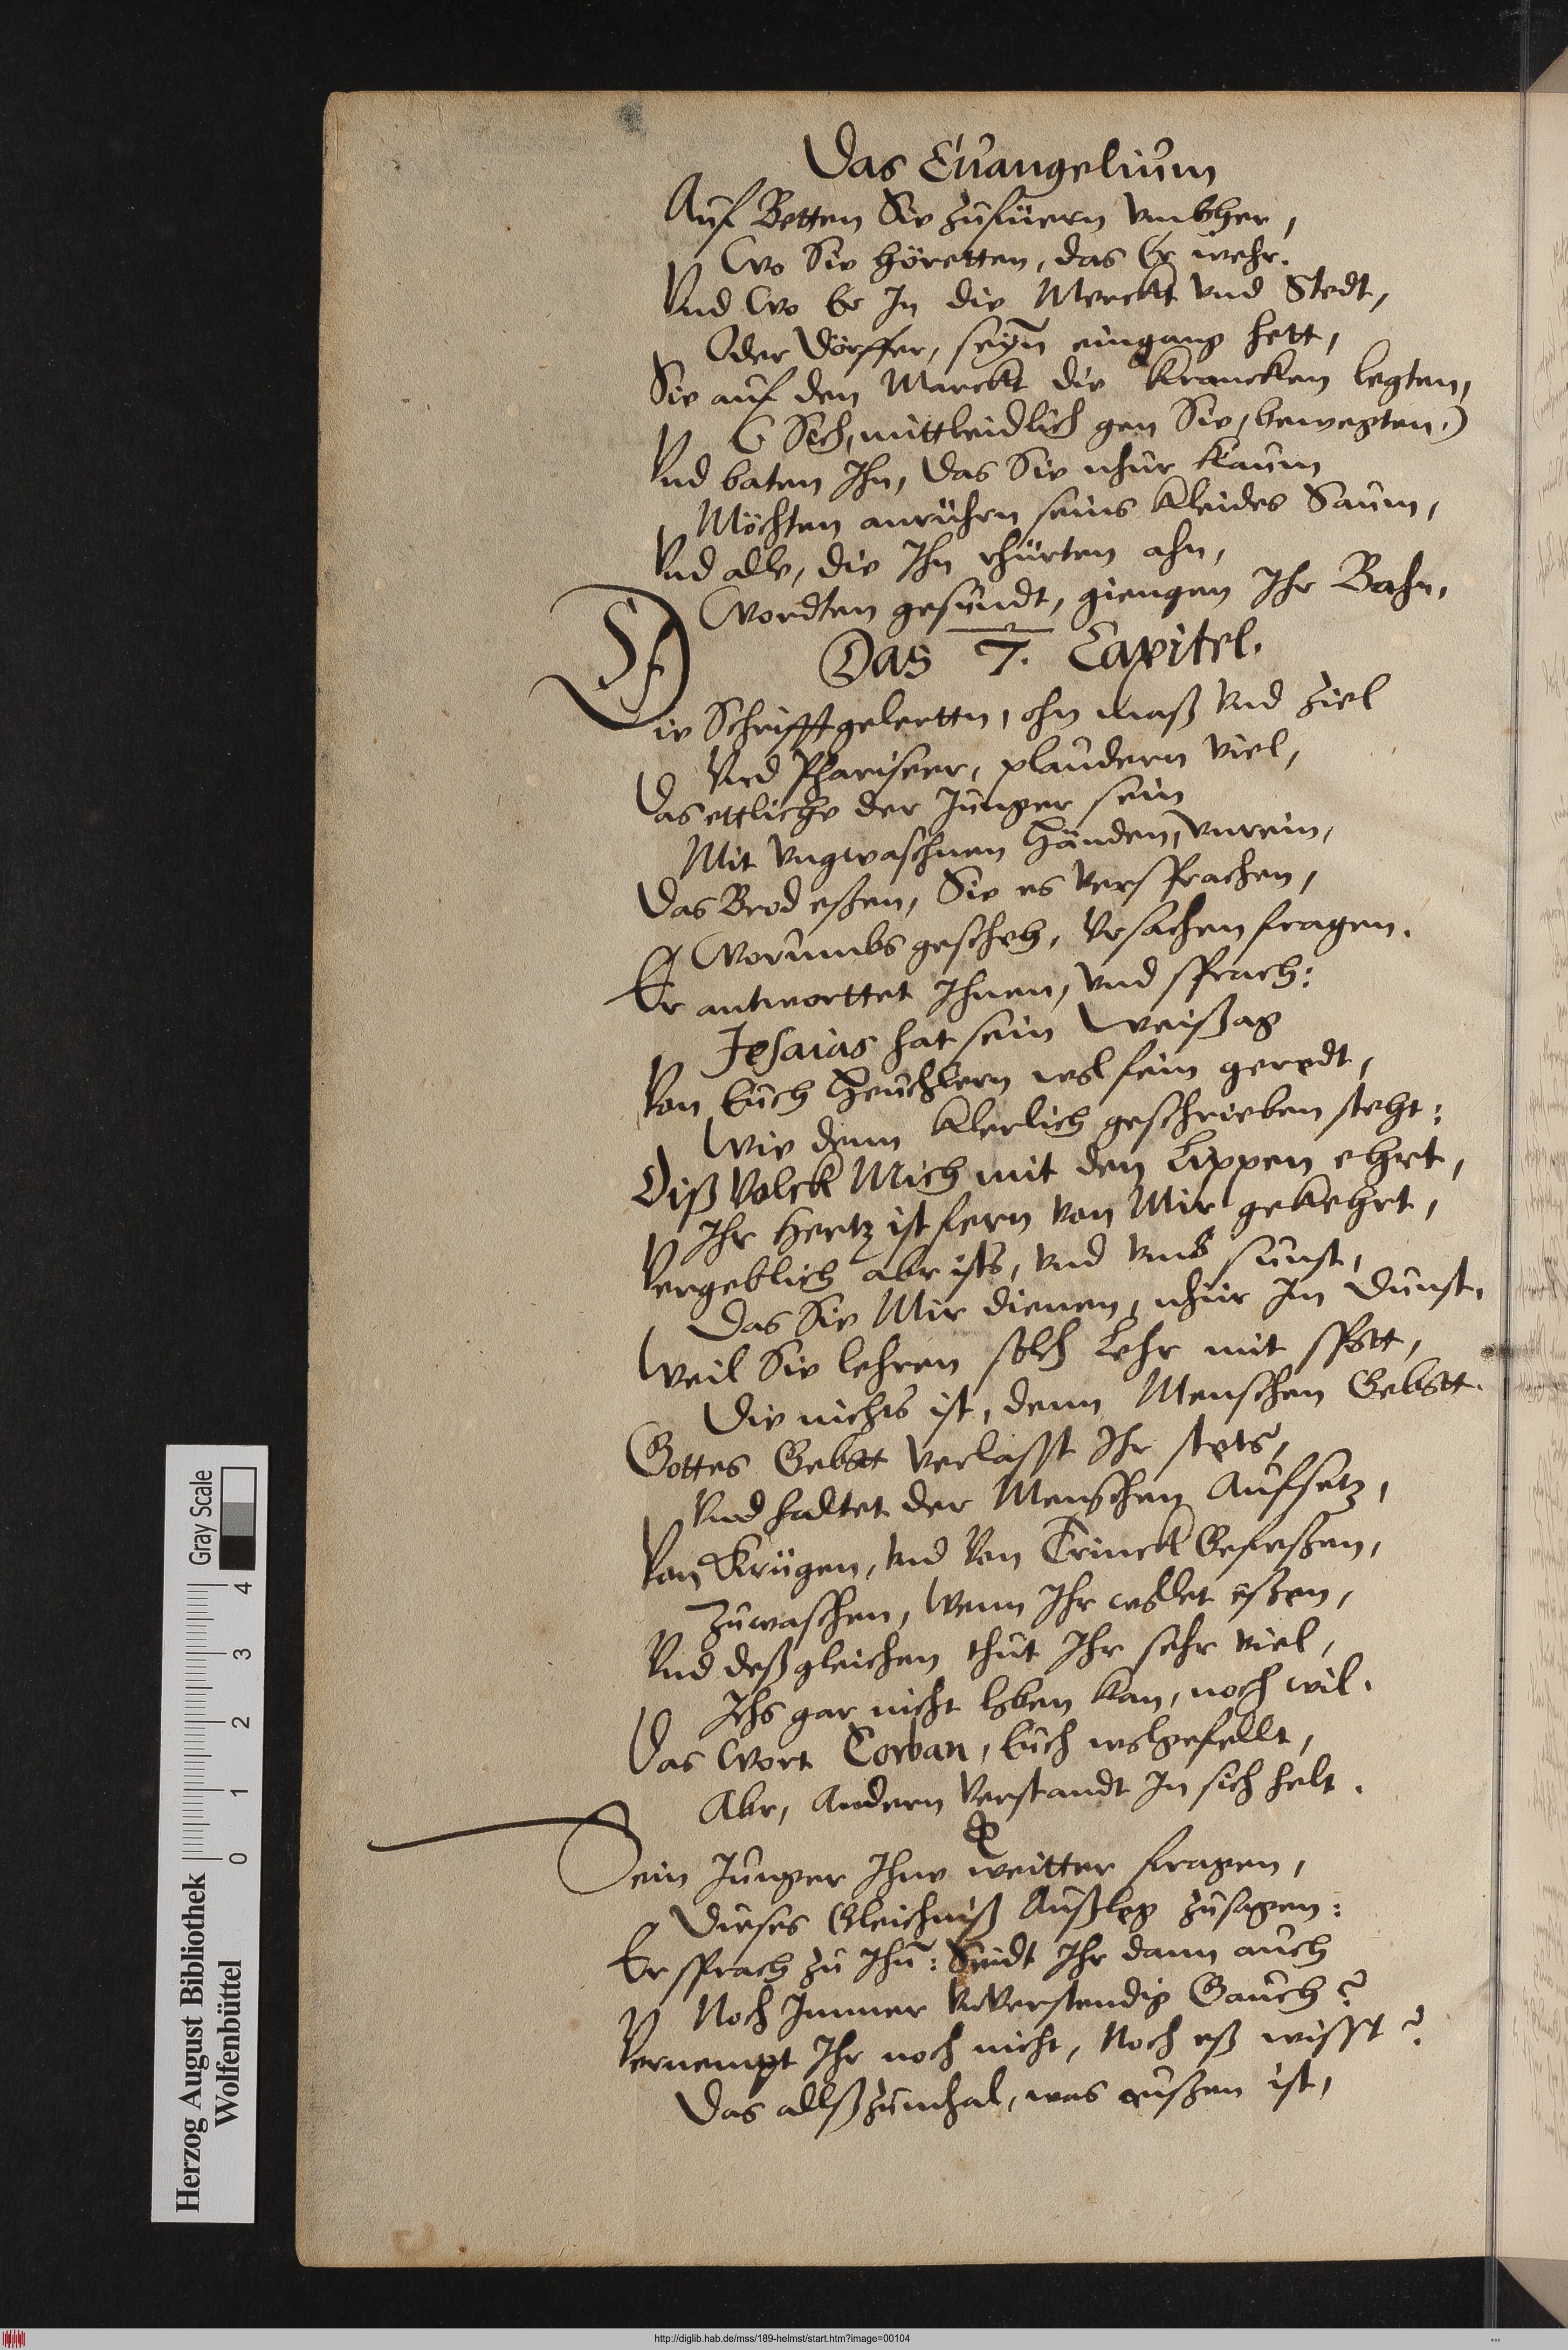 Das Euangelium
Auf Betten Sie zufüern vmbher,
Wo Sie höretten, das Er wehr.
Vnd Wo Er In die Merckt vnd Stedt,
Oder Dörffer, seyn̄ eingang hett,
Sie auf den Marckt die Krancken legten,
(Sich, mittleidlich gen Sie, bewegten.)
Vnd baten Ihn, das Sie nhur kaum
Möchten anrührn seins Kleides Saum,
Vnd alle, die Ihn rhürten ahn,
Wordten gesundt, giengen Ihr Bahn.
Das 7. Capitel.
Die Schrifftgelerttn, ohn maß vnd ziel
Vnd Phariseer, plaudern viel,
Das ettliche der Junger sein
Mit vngwaschnen Händen, vnrein,
Das Brod eßen, Sie es versprachen,
Worumbs gescheh, Vrsachen fragen.
Er antworttet Ihnen, vnd sprach:
Jesaias hat sein Weißag
Von Euch Heuchlern wol fein geredt,
Wie denn klerlich geschrieben steht:
Diß Volck Mich mit den Lippen ehrt,
Ihr Hertz ist fern von Mir gekehrt,
Vergeblich abr ists, vnd vmb sunst,
Das Sie Mir dienen, nhur Im Dunst.
Weil Sie lehren solch Lehr mit spott,
Die nichts ist, denn Menschen Gebott.
Gottes Gebott verlasst Ihr stets,
Vnd haltet der Menschen Aufsetz,
Von Krügen, vnd Von Trinck Gefeßen,
Zuwaschen, Wenn Ihr wollet eßen,
Vnd deßgleichen thut Ihr sehr viel,
Ichs gar nicht loben kan, noch wil.
Das Wort Corban, Euch wolgefellt,
Abr, Andern Verstandt In sich helt.
Sein Junger Ihne weitter fragen,
Dieses Gleichniß Außleg zusagen:
Er sprach zu Ihn̄: Seidt Ihr dann auch
Noch Immer Vnverstendig Gauch?
Vernempt Ihr noch nicht, Noch eß wisst?
Das allß zumhal, was außen ist,
Herzog August Bibliothek
Wolfenbüttel
0 1 2 3 4
Gray Scale
http://diglib.hab.de/mss/189-helmst/start.htm?image=00104